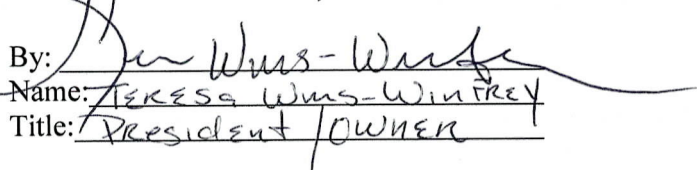 By: Wms-Winfrey
Name: TERESA Wms-WINFREY
Title: President / OWNER